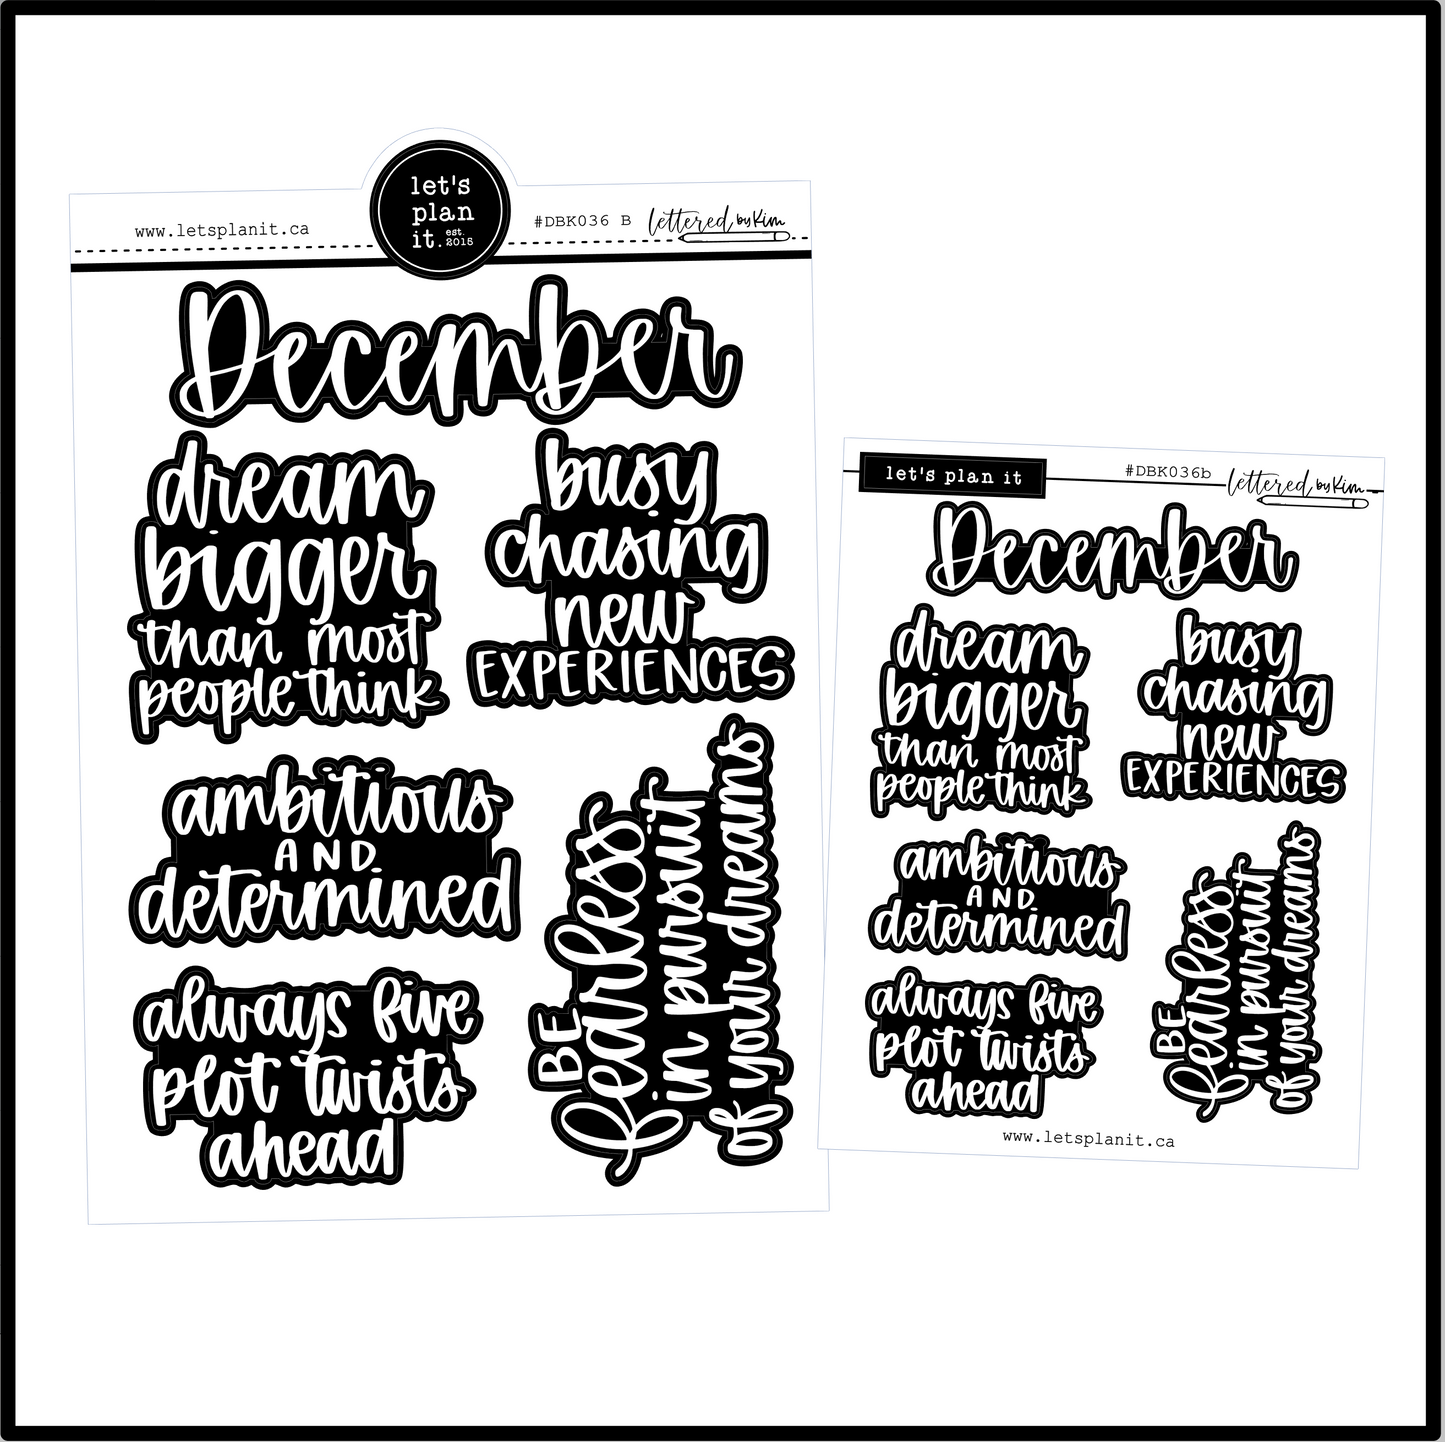 let's
plan
it. est. 2015
www.letsplanit.ca
#DBK036 B
lettered by Kim
December
dream
bigger
than most
people think
busy
chasing
new
EXPERIENCES
ambitious
AND
determined
BE
fearless
in pursuit
of your dreams
always five
plot twists
ahead
let's plan it
#DBK036b
lettered by Kim
December
dream
bigger
than most
people think
busy
chasing
new
EXPERIENCES
ambitious
AND
determined
BE
fearless
in pursuit
of your dreams
always five
plot twists
ahead
www.letsplanit.ca